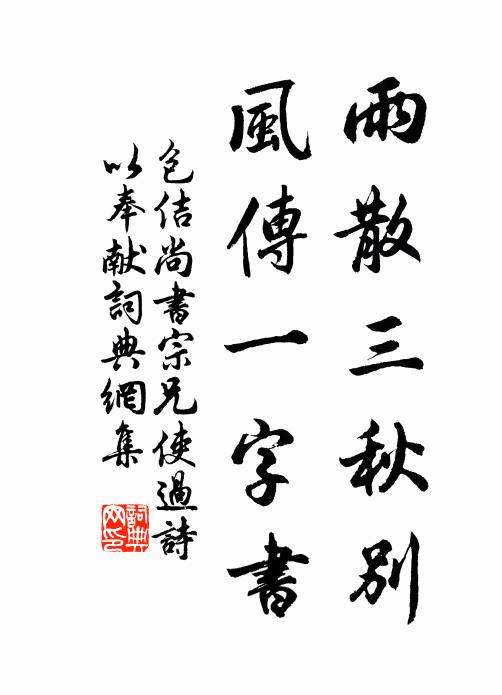 雨散三秋別
風傳一字書
包佶尚書宗兄使過詩
以奉献詞典網集
詞典网印